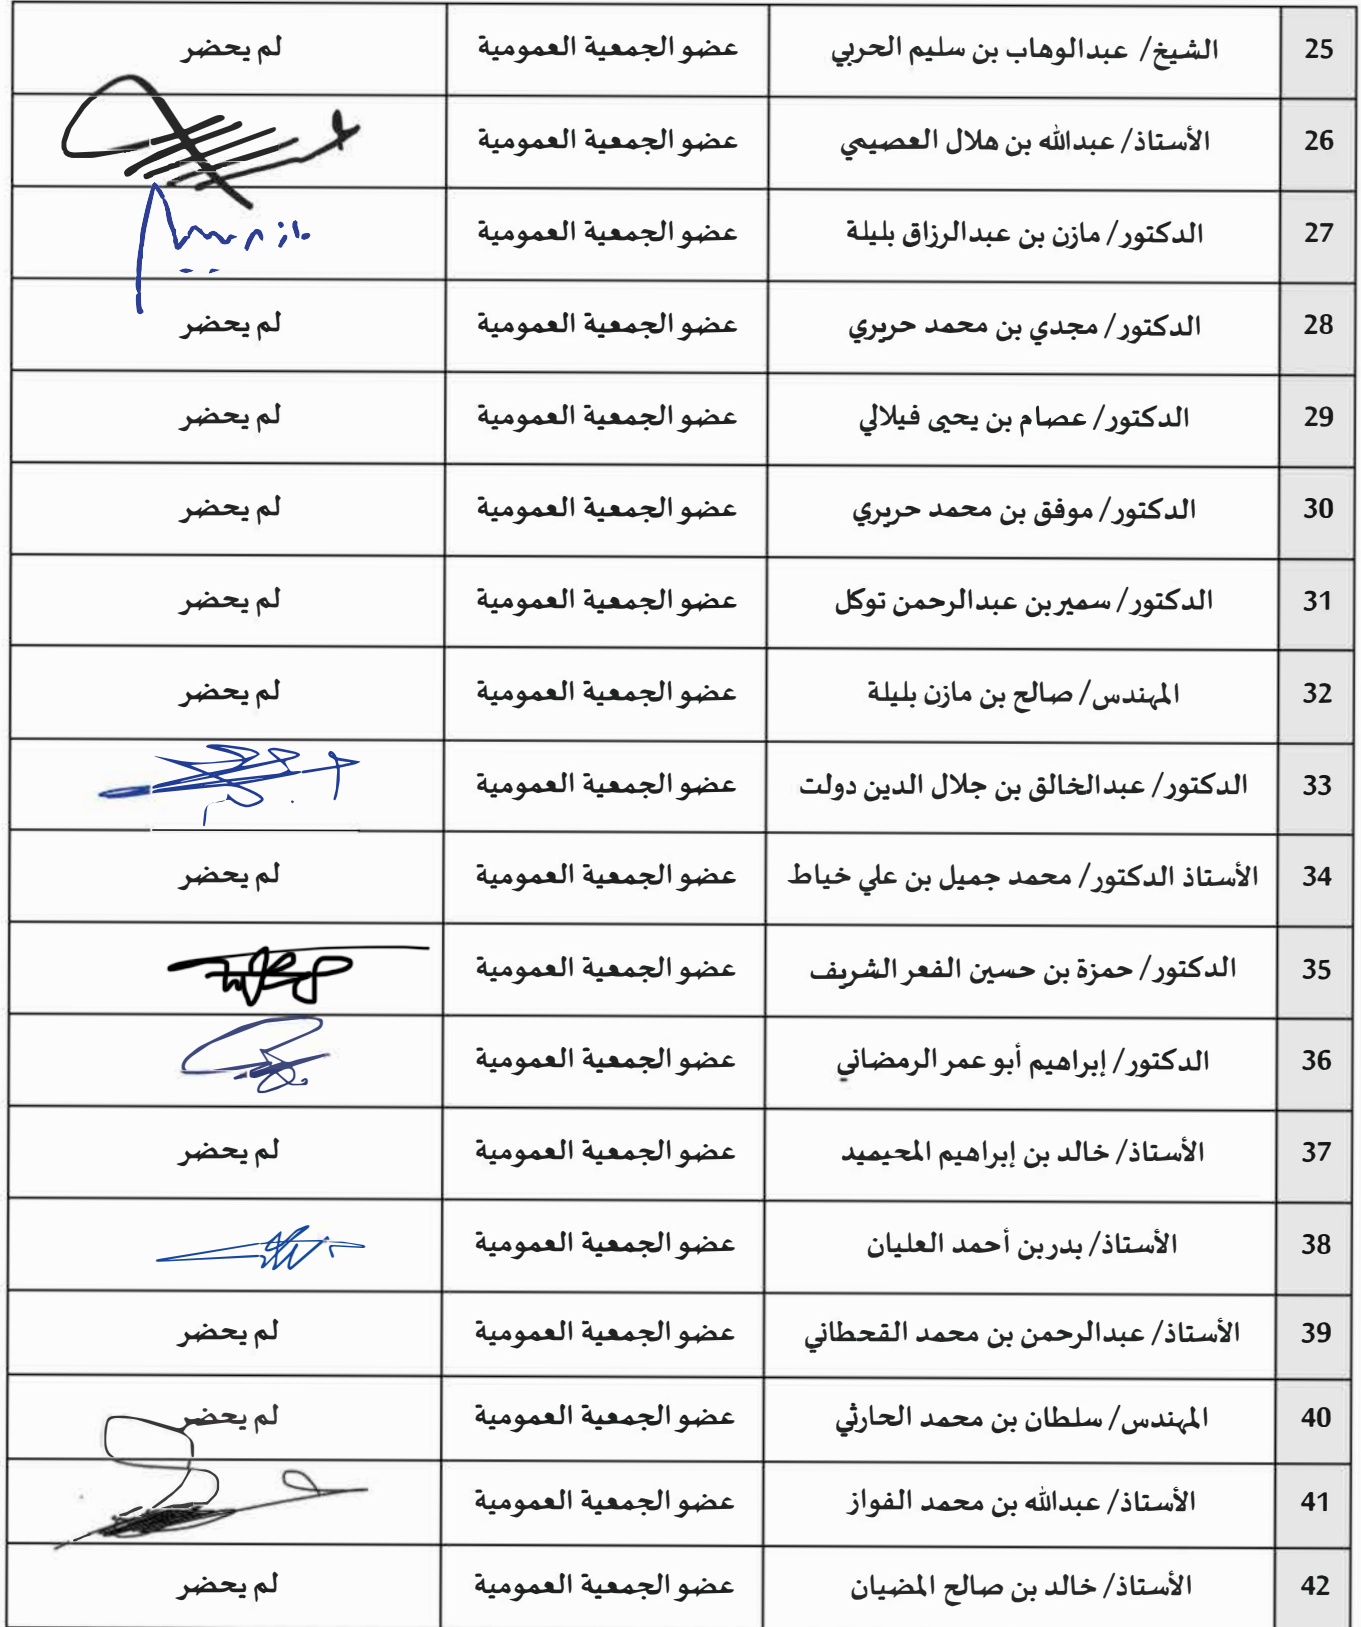 25 الشيخ/ عبدالوهاب بن سليم الحربي عضو الجمعية العمومية لم يحضر
26 الأستاذ/ عبدالله بن هلال العصيمي عضو الجمعية العمومية
27 الدكتور/ مازن بن عبدالرزاق بليلة عضو الجمعية العمومية
28 الدكتور/ مجدي بن محمد حريري عضو الجمعية العمومية لم يحضر
29 الدكتور/ عصام بن يحيى فيلالي عضو الجمعية العمومية لم يحضر
30 الدكتور/ موفق بن محمد حريري عضو الجمعية العمومية لم يحضر
31 الدكتور/ سمير بن عبدالرحمن توكل عضو الجمعية العمومية لم يحضر
32 المهندس/ صالح بن مازن بليلة عضو الجمعية العمومية لم يحضر
33 الدكتور/ عبدالخالق بن جلال الدين دولت عضو الجمعية العمومية
34 الأستاذ الدكتور/ محمد جميل بن علي خياط عضو الجمعية العمومية لم يحضر
35 الدكتور/ حمزة بن حسين الفعر الشريف عضو الجمعية العمومية
36 الدكتور/ إبراهيم أبو عمر الرمضاني عضو الجمعية العمومية
37 الأستاذ/ خالد بن إبراهيم المحيميد عضو الجمعية العمومية لم يحضر
38 الأستاذ/ بدر بن أحمد العليان عضو الجمعية العمومية
39 الأستاذ/ عبدالرحمن بن محمد القحطاني عضو الجمعية العمومية لم يحضر
40 المهندس/ سلطان بن محمد الحارثي عضو الجمعية العمومية لم يحضر
41 الأستاذ/ عبدالله بن محمد الفواز عضو الجمعية العمومية
42 الأستاذ/ خالد بن صالح المضيان عضو الجمعية العمومية لم يحضر